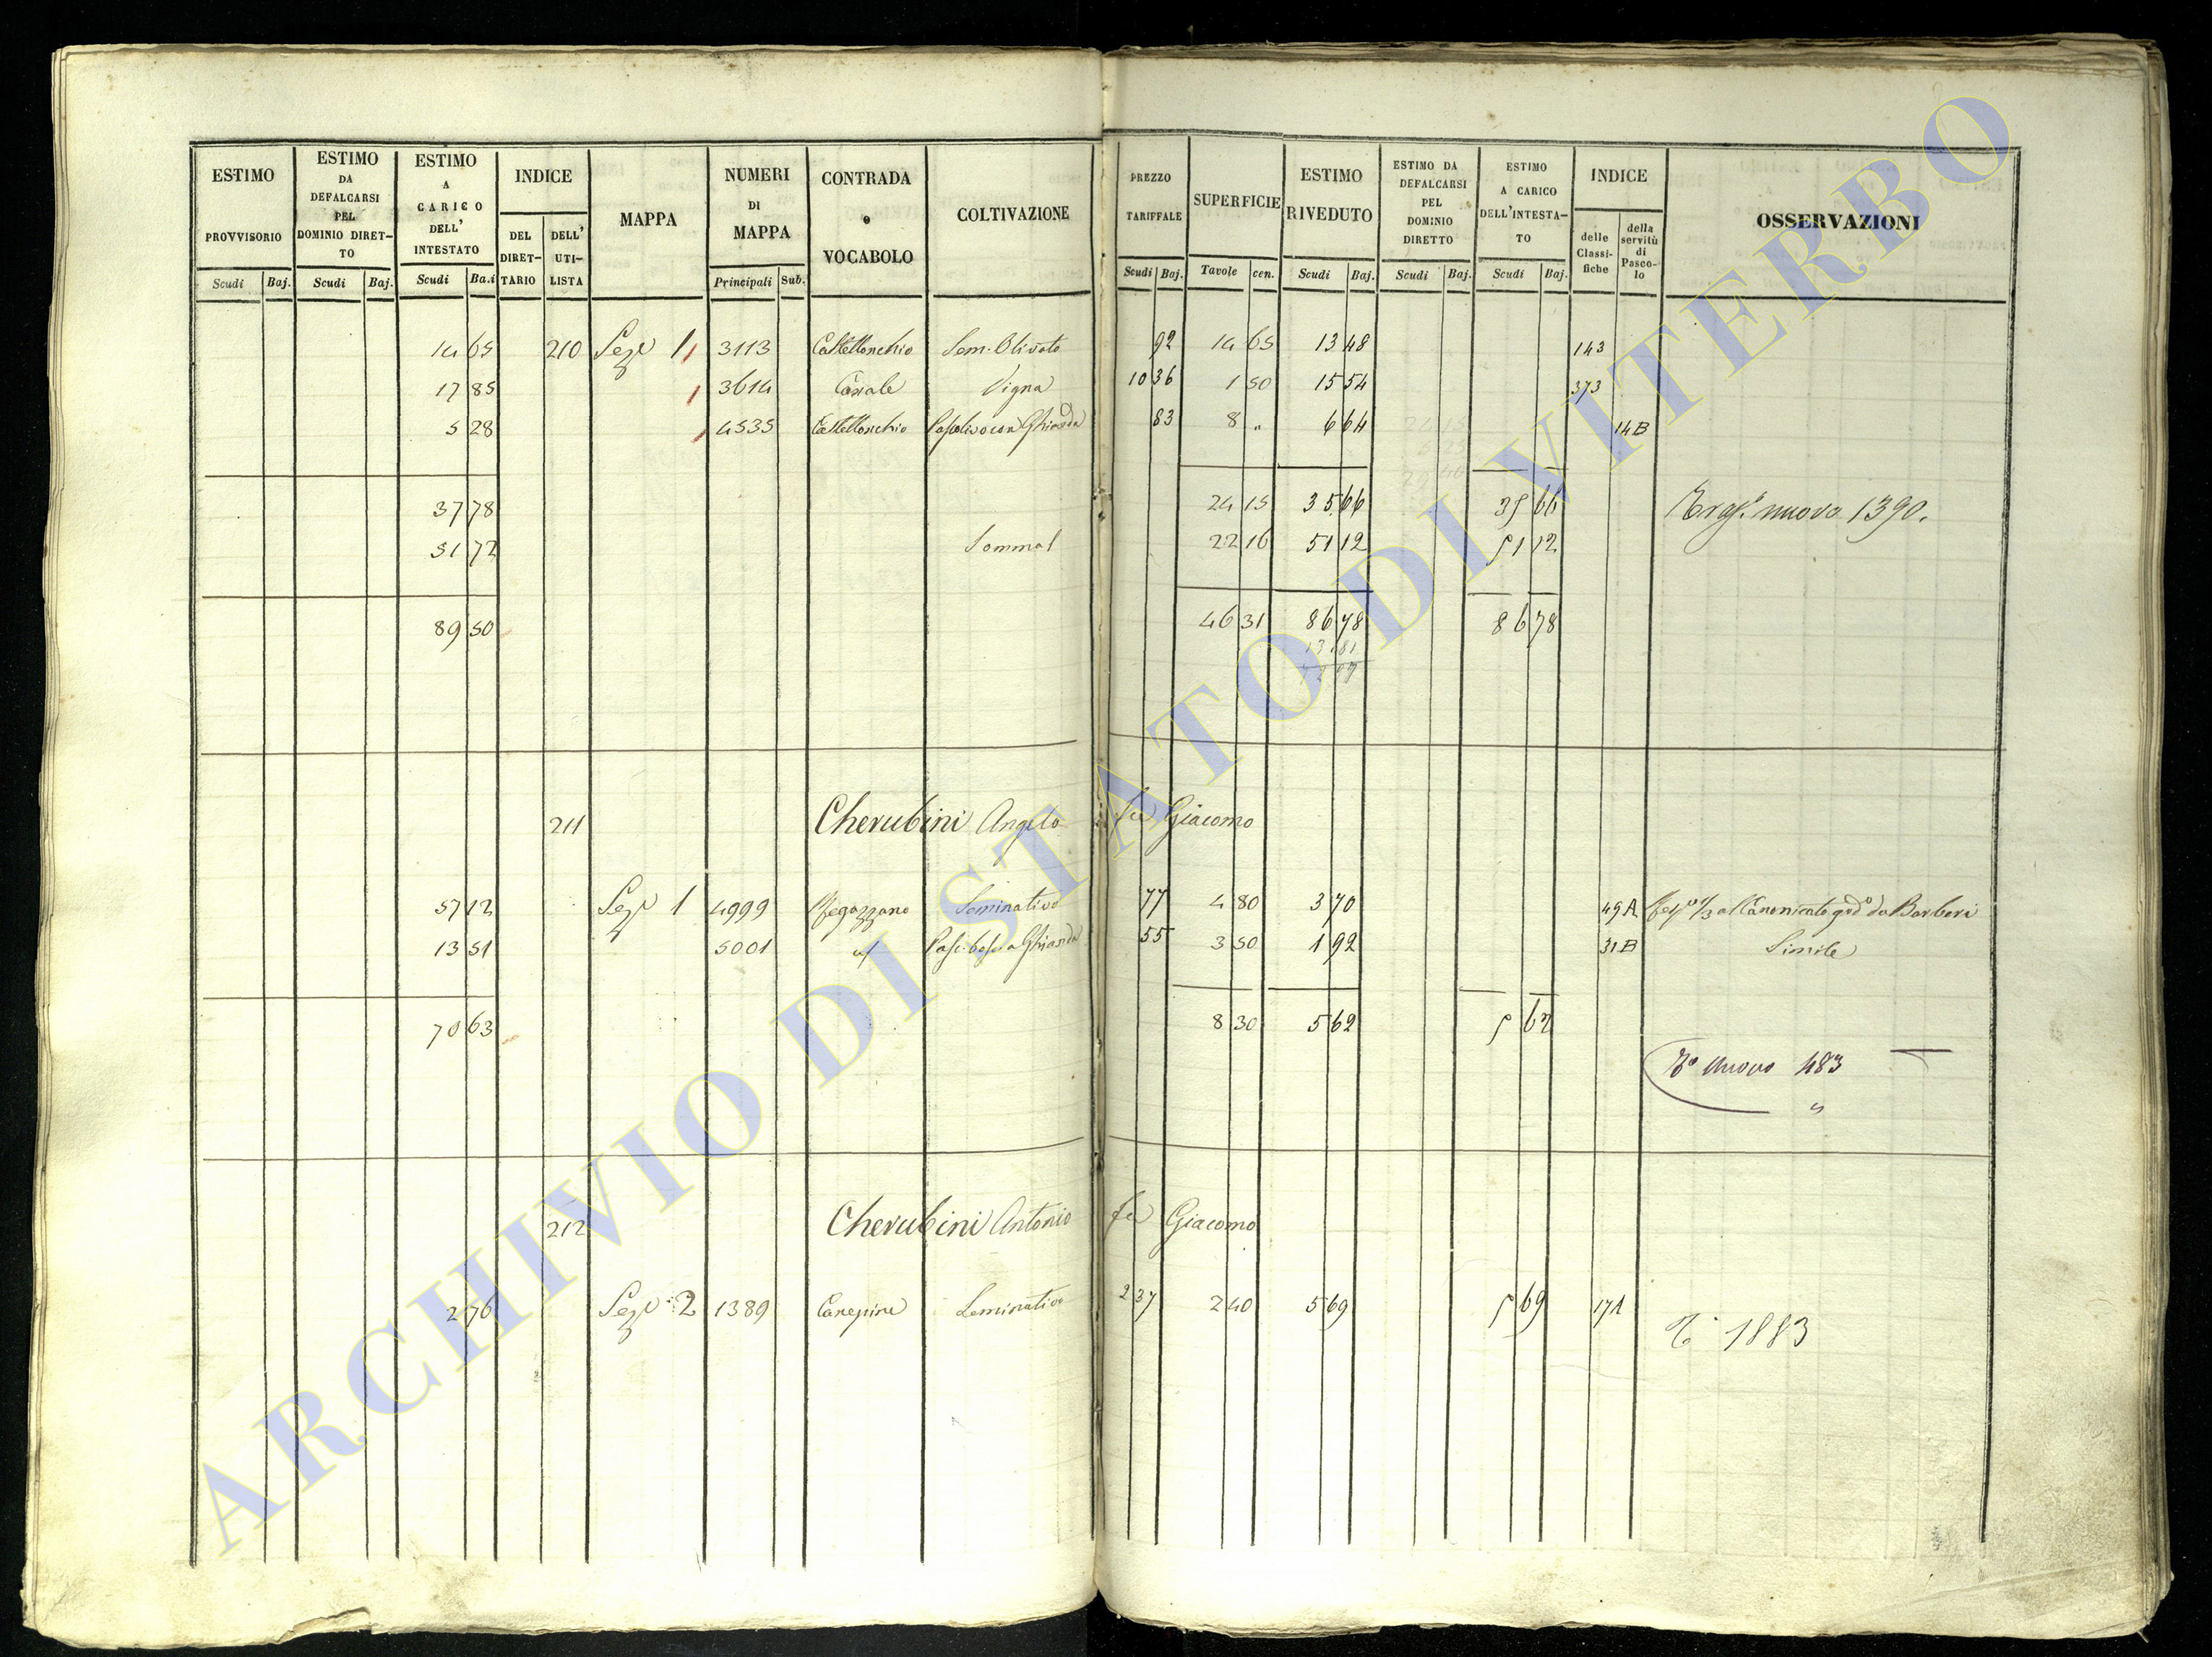 ESTIMO PROVVISORIO Scudi Baj.
ESTIMO DA DEFALCARSI PEL DOMINIO DIRET-TO Scudi Baj.
ESTIMO A CARICO DELL' INTESTATO Scudi Ba.i
INDICE DEL DIRET-TARIO DELL' UTI-LISTA
MAPPA
NUMERI DI MAPPA Principali Sub.
CONTRADA e VOCABOLO
COLTIVAZIONE
PREZZO TARIFFALE Scudi Baj.
SUPERFICIE Tavole cen.
ESTIMO RIVEDUTO Scudi Baj.
ESTIMO DA DEFALCARSI PEL DOMINIO DIRETTO Scudi Baj.
ESTIMO A CARICO DELL'INTESTA-TO Scudi Baj.
INDICE delle Classi-fiche della servitù di Pasco-lo
OSSERVAZIONI
14 65 210 Seze 1 3113 Castellonchio Sem. Olivato 92 14 65 13 48 143
17 85 3614 Casale Vigna 10 36 1 50 15 54 373
5 28 4535 Castellonchio Pascolivo con Ghianda 83 8 " 6 64 14B
37 78 24 15 35 66 35 66 nuovo 1390.
51 72 Somma 22 16 51 12 51 12
89 50 46 31 86 78 86 78
13 81
211 Cherubini Angelo fu Giacomo
57 12 Seze 1 4999 Seminativo 77 4 80 3 70 49A 1/3 al Canonicato god.o da Barberi
13 51 5001 Pasc. bosc. a Ghianda 55 3 50 1 92 31B Simile
70 63 8 30 5 62 5 62
T.o nuovo 483
212 Cherubini Antonio fu Giacomo
2 76 Seze 2 1389 Canepine Seminativo 2 37 2 40 5 69 5 69 17A T. 1883
ARCHIVIO DI STATO DI VITERBO